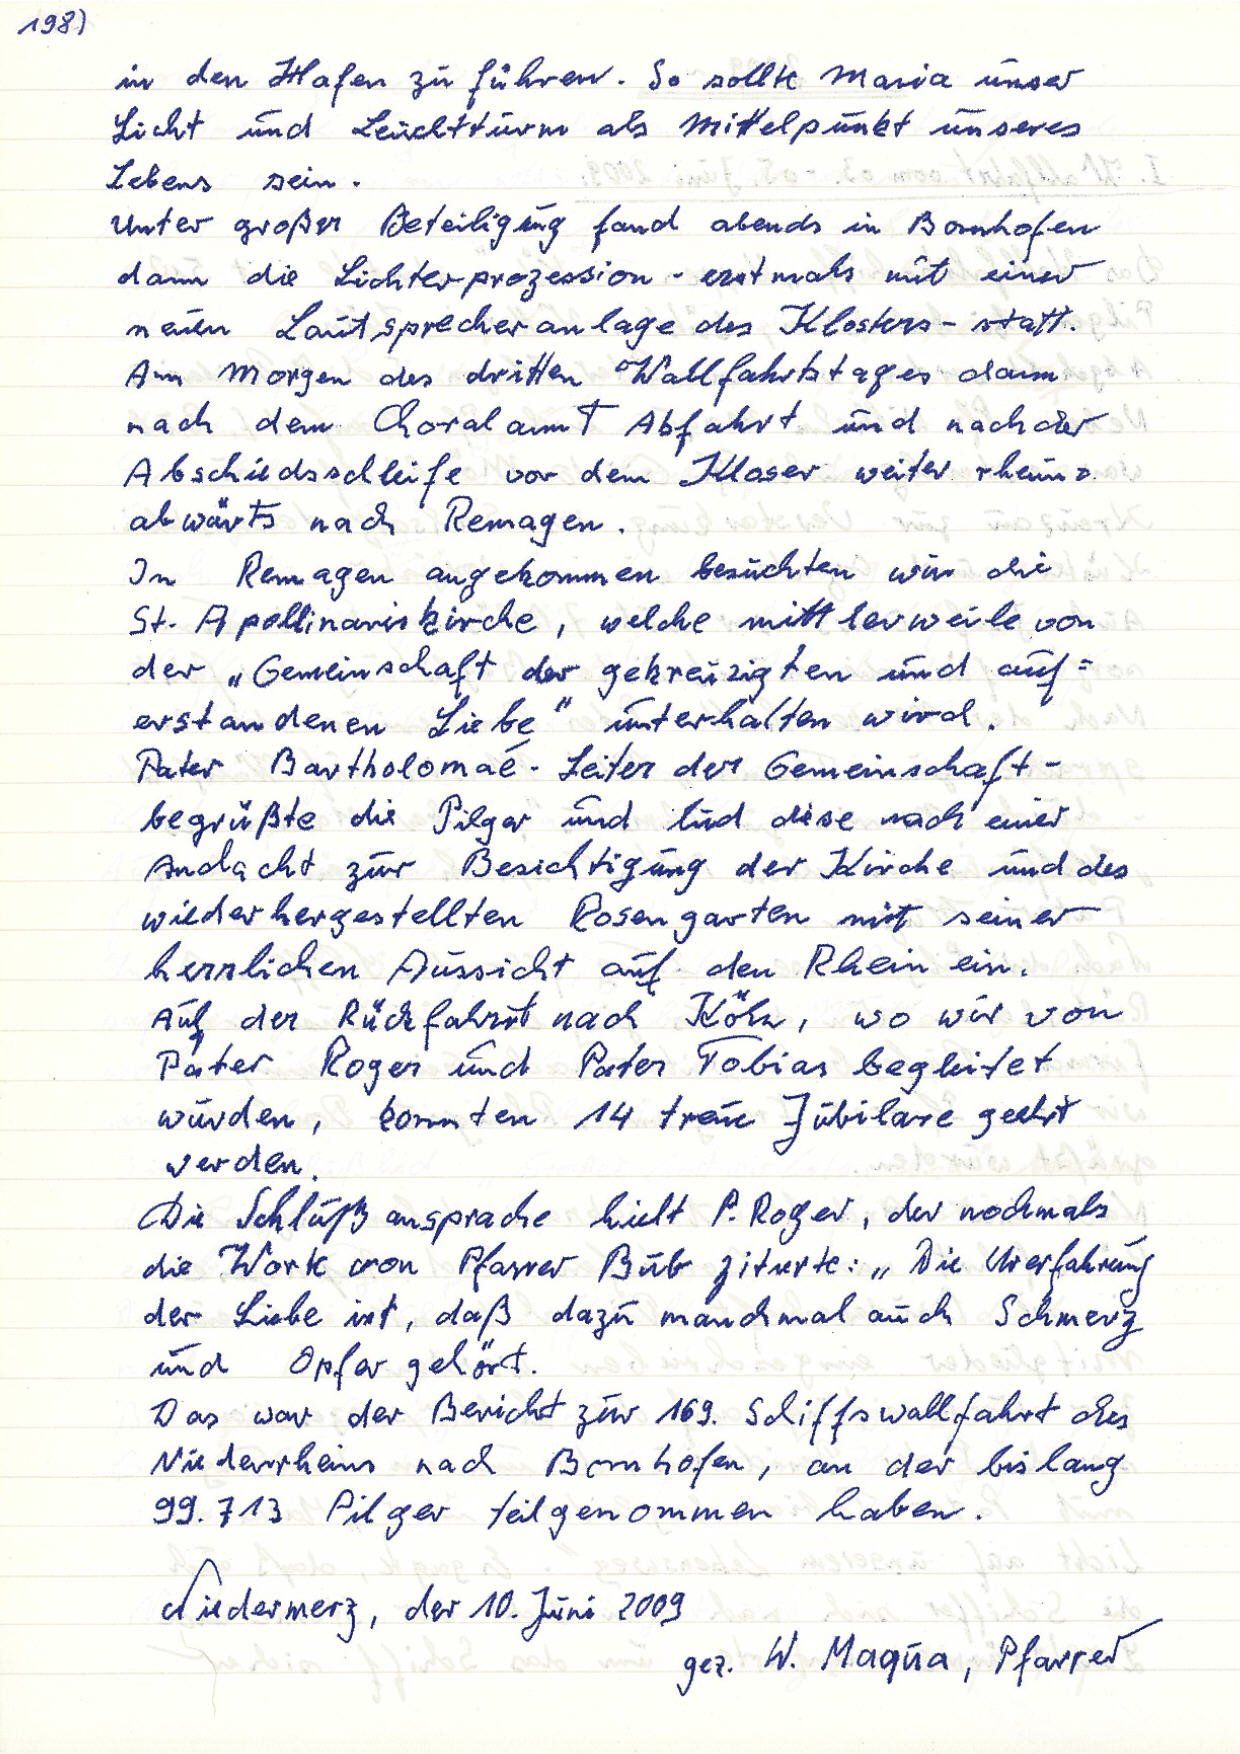 198)
in den Hafen zu führen. So sollte Maria unser
Licht und Leuchtturm als Mittelpunkt unseres
Lebens sein.
Unter großer Beteiligung fand abends in Bornhofen
dann die Lichterprozession - erstmals mit einer
neuen Lautsprecheranlage des Klosters - statt.
Am Morgen des dritten Wallfahrtstages dann
nach dem Choralamt Abfahrt und nach der
Abschiedsschleife vor dem Kloser weiter rhein=
abwärts nach Remagen.
In Remagen angekommen besuchten wir die
St. Apollinariskirche, welche mittlerweile von
der „Gemeinschaft der gekreuzigten und auf=
erstandenen Liebe" unterhalten wird.
Pater Bartholomaé - Leiter der Gemeinschaft -
begrüßte die Pilger und lud diese nach einer
Andacht zur Besichtigung der Kirche und des
wiederhergestellten Rosengarten mit seiner
herrlichen Aussicht auf den Rhein ein.
Auf der Rückfahrt nach Köln, wo wir von
Pater Roger und Pater Tobias begleitet
wurden, konnten 14 treue Jubilare geehrt
werden.
Die Schlußansprache hielt P. Roger, der nochmals
die Worte von Pfarrer Bub zitierte: „Die Urerfahrung
der Liebe ist, daß dazu manchmal auch Schmerz
und Opfer gehört.
Das war der Bericht zur 169. Schiffswallfahrt des
Niederrheins nach Bornhofen, an der bislang
99.713 Pilger teilgenommen haben.
Niedermerz, der 10. Juni 2009
gez. W. Maqua, Pfarrer